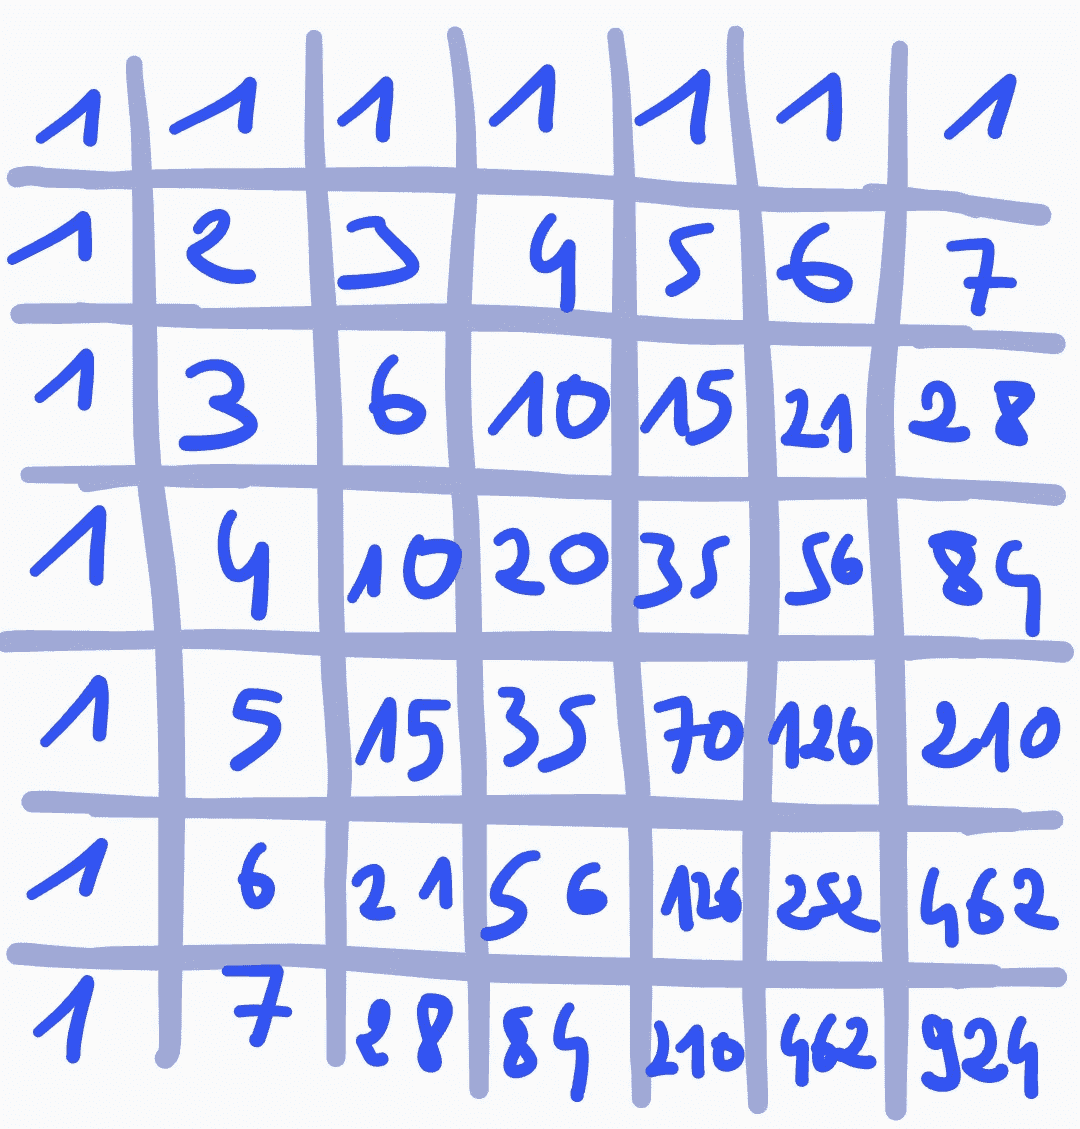 1 1 1 1 1 1 1
1 2 3 4 5 6 7
1 3 6 10 15 21 28
1 4 10 20 35 56 84
1 5 15 35 70 126 210
1 6 21 56 126 252 462
1 7 28 84 210 462 924